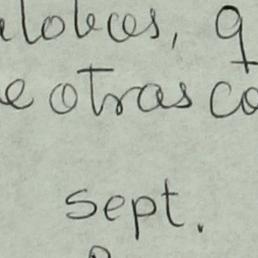 valores, q
e otras co
sept.